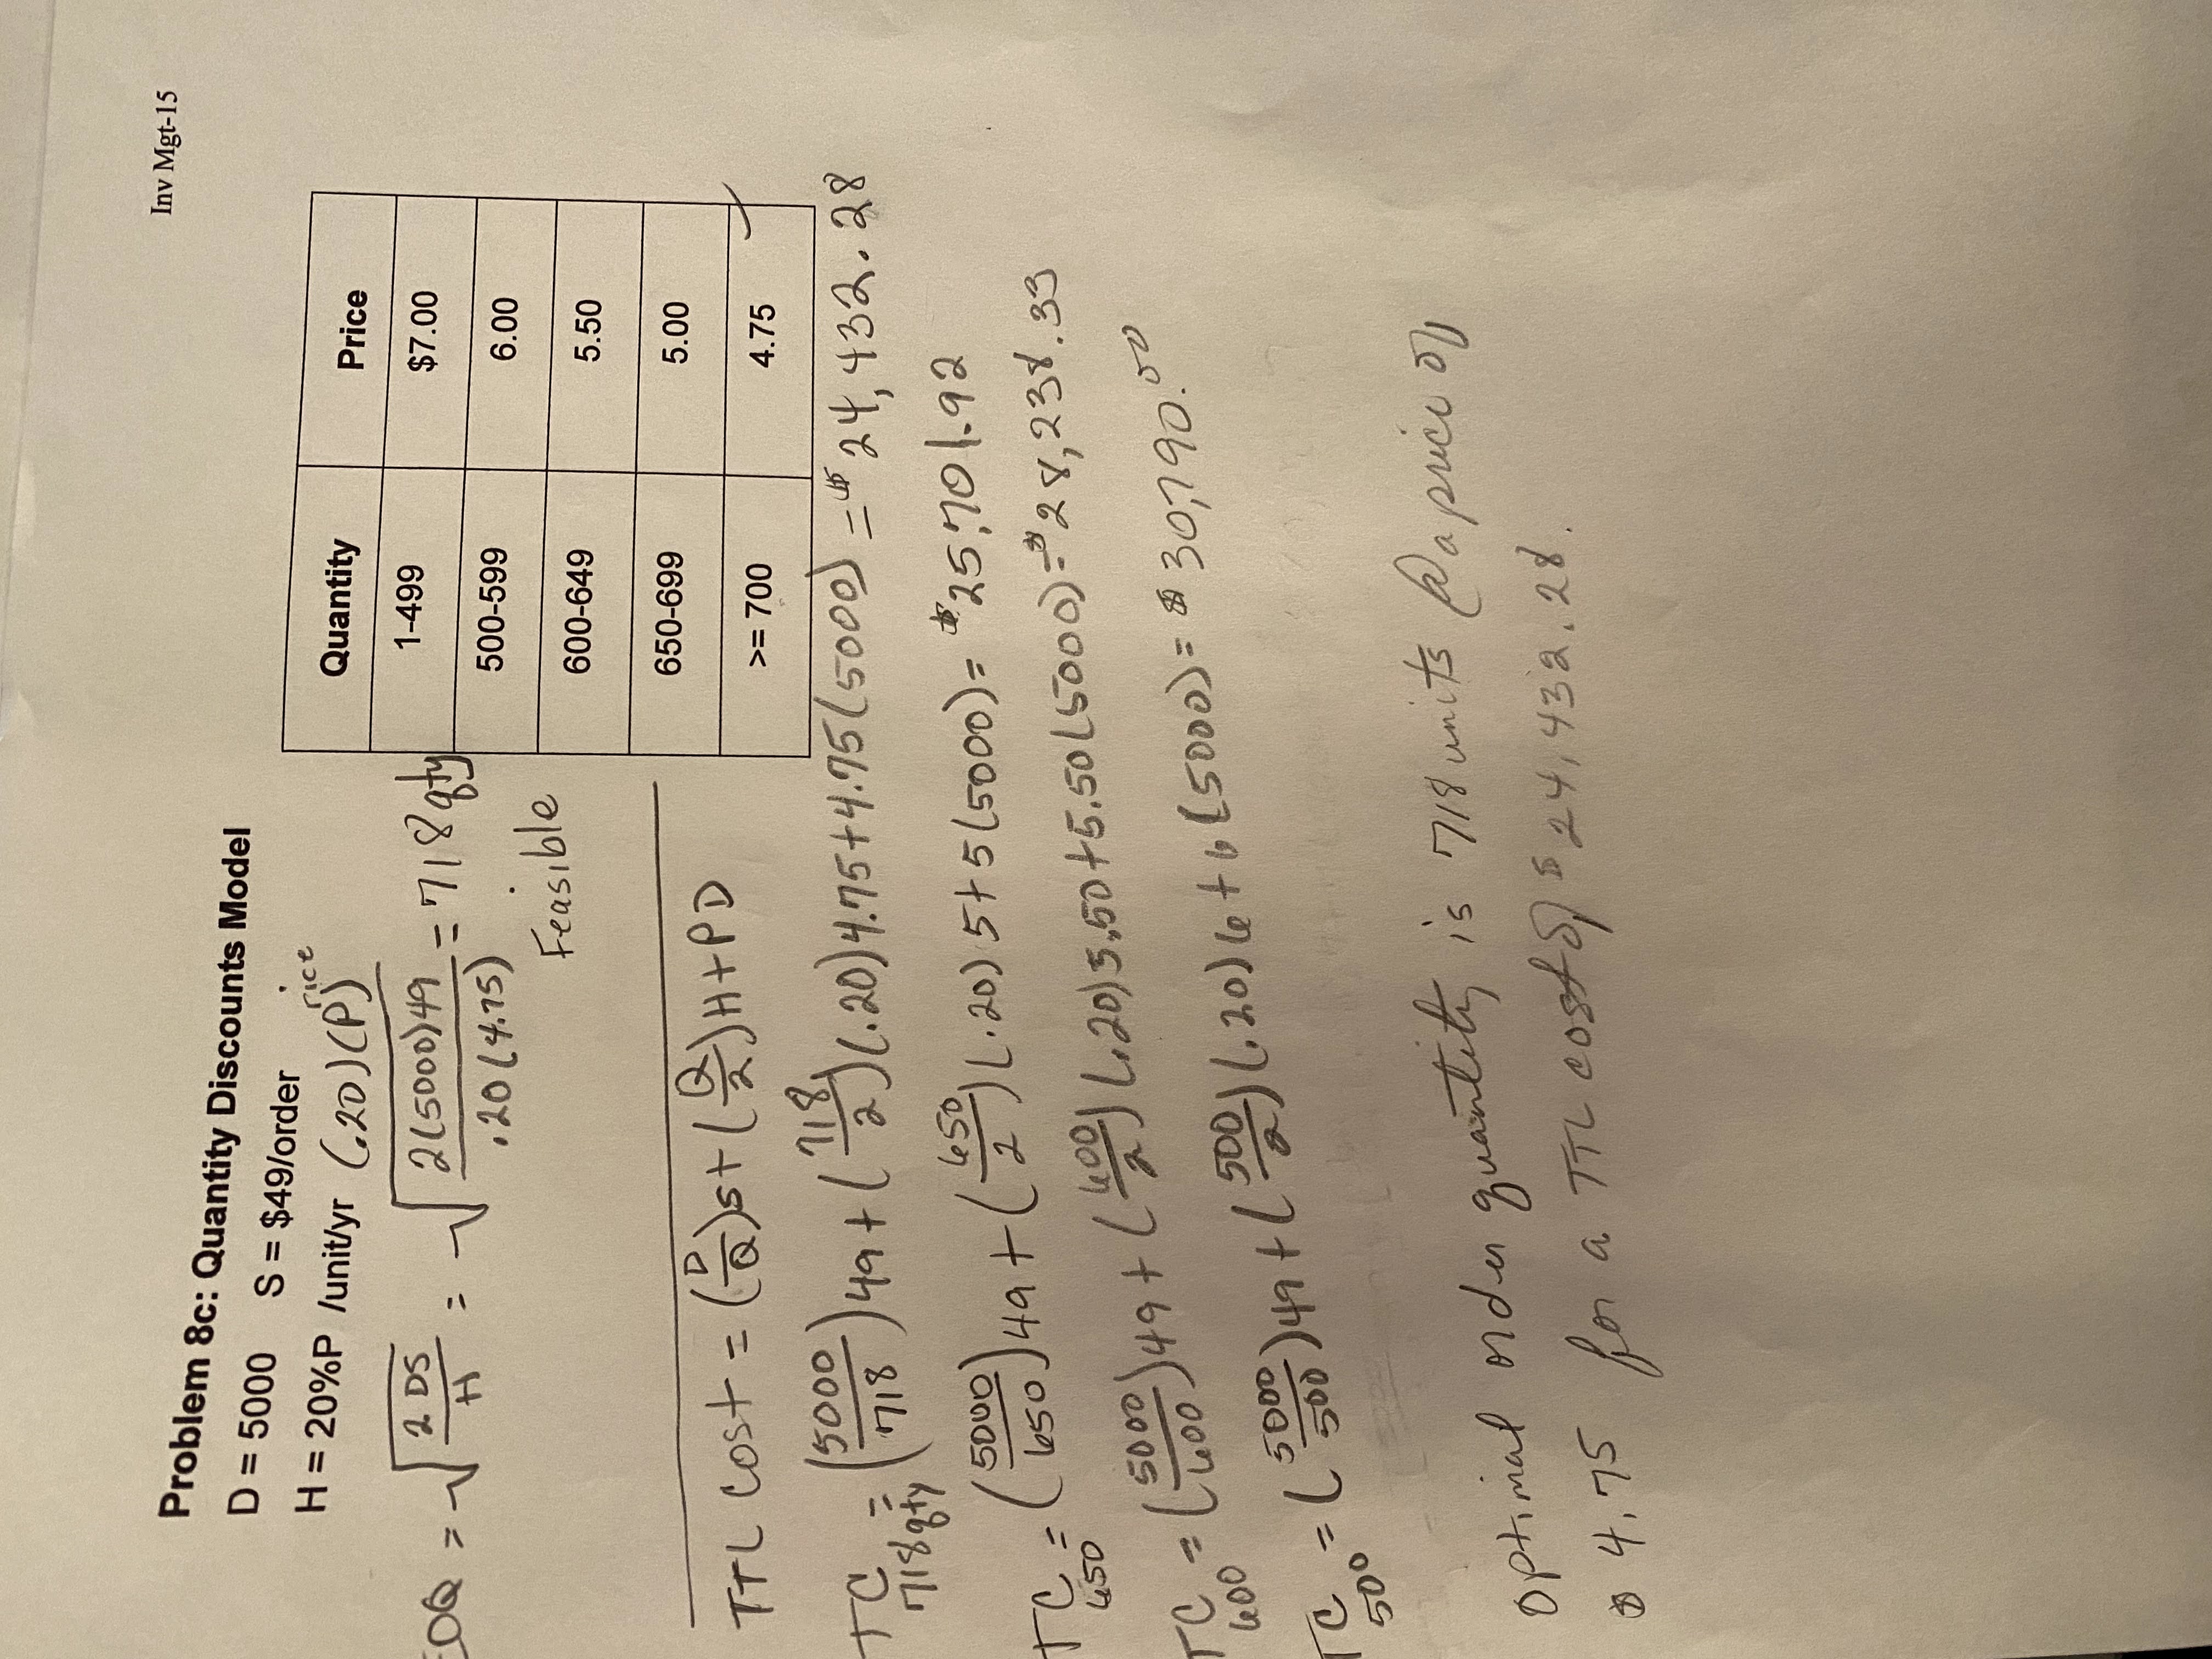 Inv Mgt-15
Problem 8c: Quantity Discounts Model
D = 5000 S = $49/order
H = 20%P /unit/yr (.20)(Price)
Quantity Price
1-499 $7.00
500-599 6.00
600-649 5.50
650-699 5.00
>= 700 4.75 ✓
EOQ = √(2DS/H) = √(2(5000)49/.20(4.75)) = 718 qty
Feasible
TTL Cost = (D/Q)S + (Q/2)H + PD
TC 718 qty = (5000/718)49 + (718/2)(.20)4.75 + 4.75(5000) = $24,432.28
TC 650 = (5000/650)49 + (650/2)(.20)5 + 5(5000) = $25,701.92
TC 600 = (5000/600)49 + (600/2)(.20)5.50 + 5.50(5000) = $28,238.33
TC 500 = (5000/500)49 + (500/2)(.20)6 + 6(5000) = $30,790.00
Optimal order quantity is 718 units @ a price of
$4.75 for a TTL cost of $24,432.28.